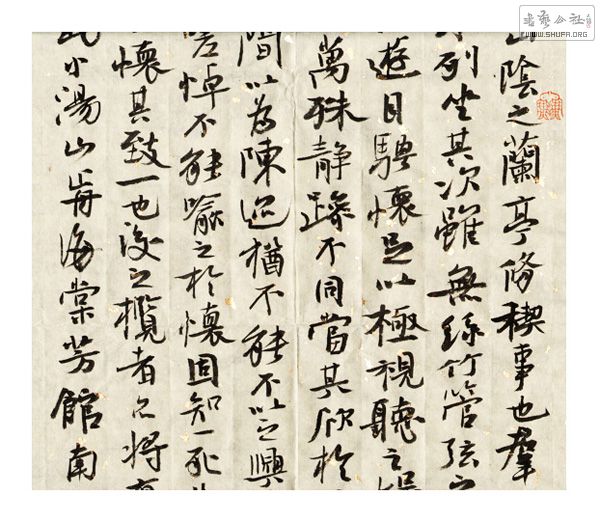 書藝公社
WWW.SHUFA.ORG
山陰之蘭亭脩禊事也羣
列坐其次雖無絲竹管弦之
遊目騁懷足以極視聽之娛
萬殊静躁不同當其欣於
間以為陳迹猶不能不以之興
嗟悼不能喻之於懷固知一死
懷其致一也後之攬者亦將有
小湯山海棠芳館南